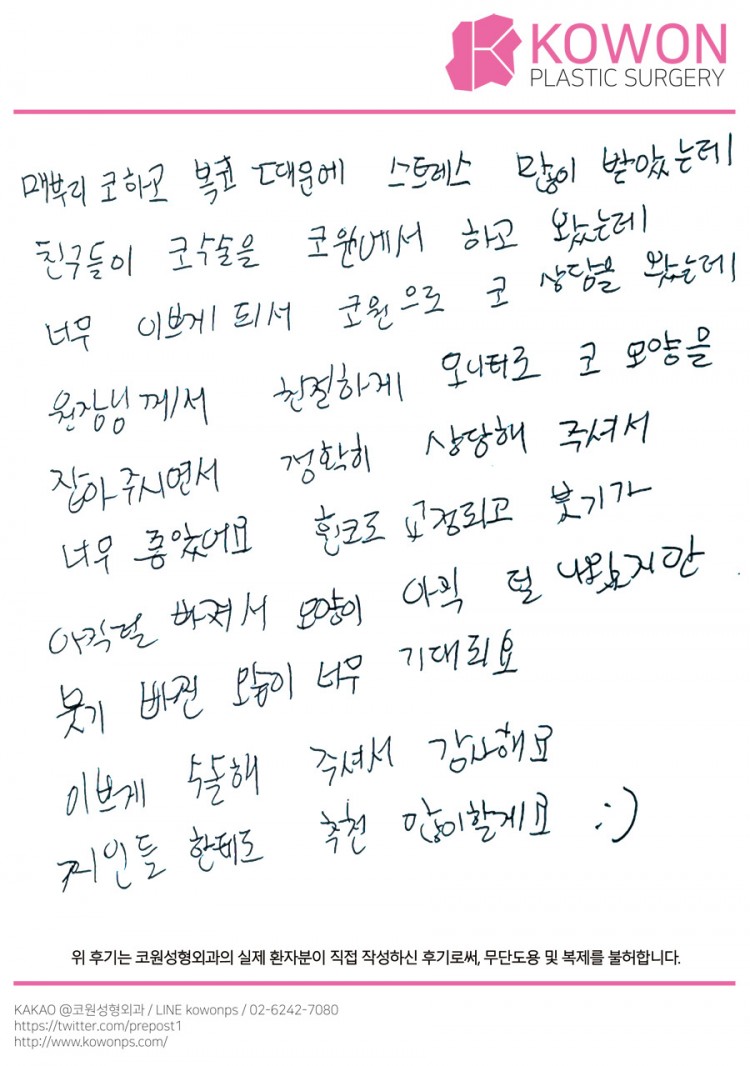 KOWON
PLASTIC SURGERY
매부리 코하고 복코 때문에 스트레스 많이 받았는데
친구들이 코수술을 코원에서 하고 왔는데
너무 이쁘게 되서 코원으로 코 상담을 왔는데
원장님께서 친절하게 모니터로 코 모양을
잡아주시면서 정확히 상담해 주셔서
너무 좋았어요 휜코로 교정되고 붓기가
아직덜 빠져서 모양이 아직 덜 나왔지만
붓기 빠진 모양이 너무 기대되요
이쁘게 수술해 주셔서 감사해요
지인들 한테도 추천 많이할게요 :)
위 후기는 코원성형외과의 실제 환자분이 직접 작성하신 후기로써, 무단도용 및 복제를 불허합니다.
KAKAO @코원성형외과 / LINE kowonps / 02-6242-7080
https://twitter.com/prepost1
http://www.kowonps.com/